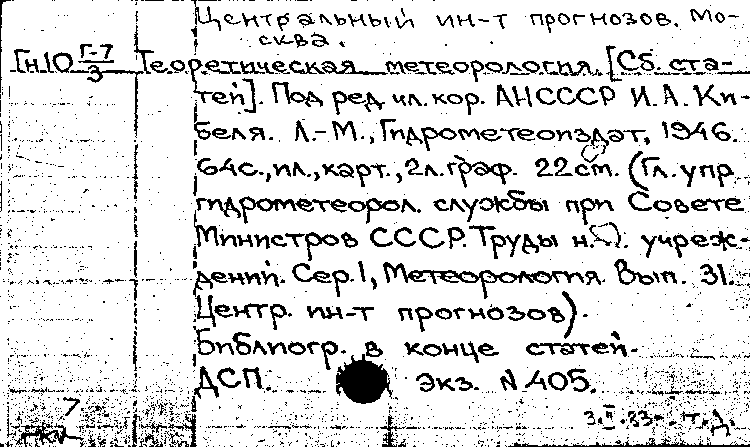 Центральный ин-т прогнозов. Мо-
сква.
Гн10 Г-7/3 Теоретическая метеорология. [Сб. ста-
тей]. Под ред чл. кор. АНСССР И.А. Ки-
беля. Л.-М., Гидрометеоиздат, 1946.
64с., ил., карт., 2л. граф. 22см. (Гл. упр
гидрометеорол. службы при Совете
Министров СССР. Труды н. учреж-
дений. Сер. 1, Метеорология. Вып. 31.
Центр. ин-т прогнозов).
Библиогр. в конце статей.
ДСП. Экз. N 405.
7